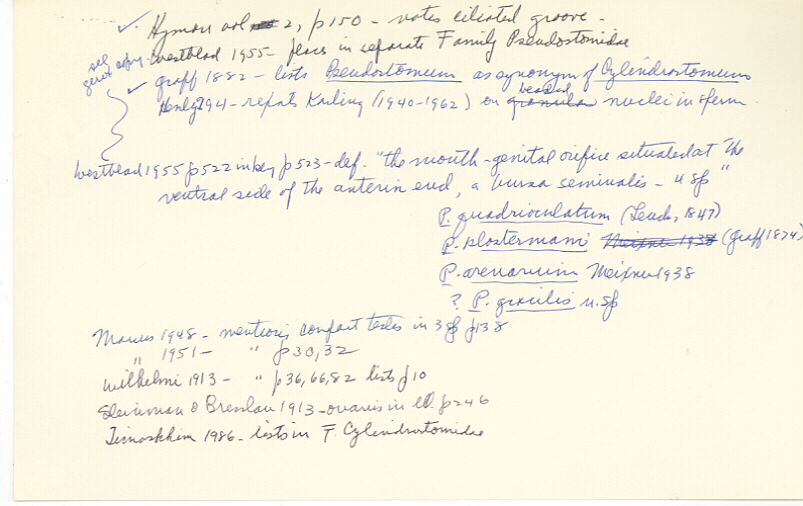 ✓ Hyman vol 2, p150 - notes ciliated groove -
see xerox copy Westblad 1955 - places in separate Family Pseudostomidae
✓ Graff 1882 - lists Pseudostomum as synonym of Cylindrostomum
Henley 74 - repeats Karling (1940-1962) on granular beaded nuclei in sperm.
Westblad 1955 p522 in key p523 - def. "the mouth-genital orifice situated at the
ventral side of the anterior end, a bursa seminalis - 4 sp"
P. quadrioculatum (Leuck, 1847)
P. klostermanni Meixner 1938 (Graff 1874)
P. arenarium Meixner 1938
? P. gracilis n. sp
Marcus 1948 - mentions compact testes in 3 sp p138
" 1951 - " p30,32
Wilhelmi 1913 - " p36,66,82 lists p10
Steinman & Bresslau 1913 - ovaries in p246
Timoshkin 1986 - lists in F. Cylindrostomidae